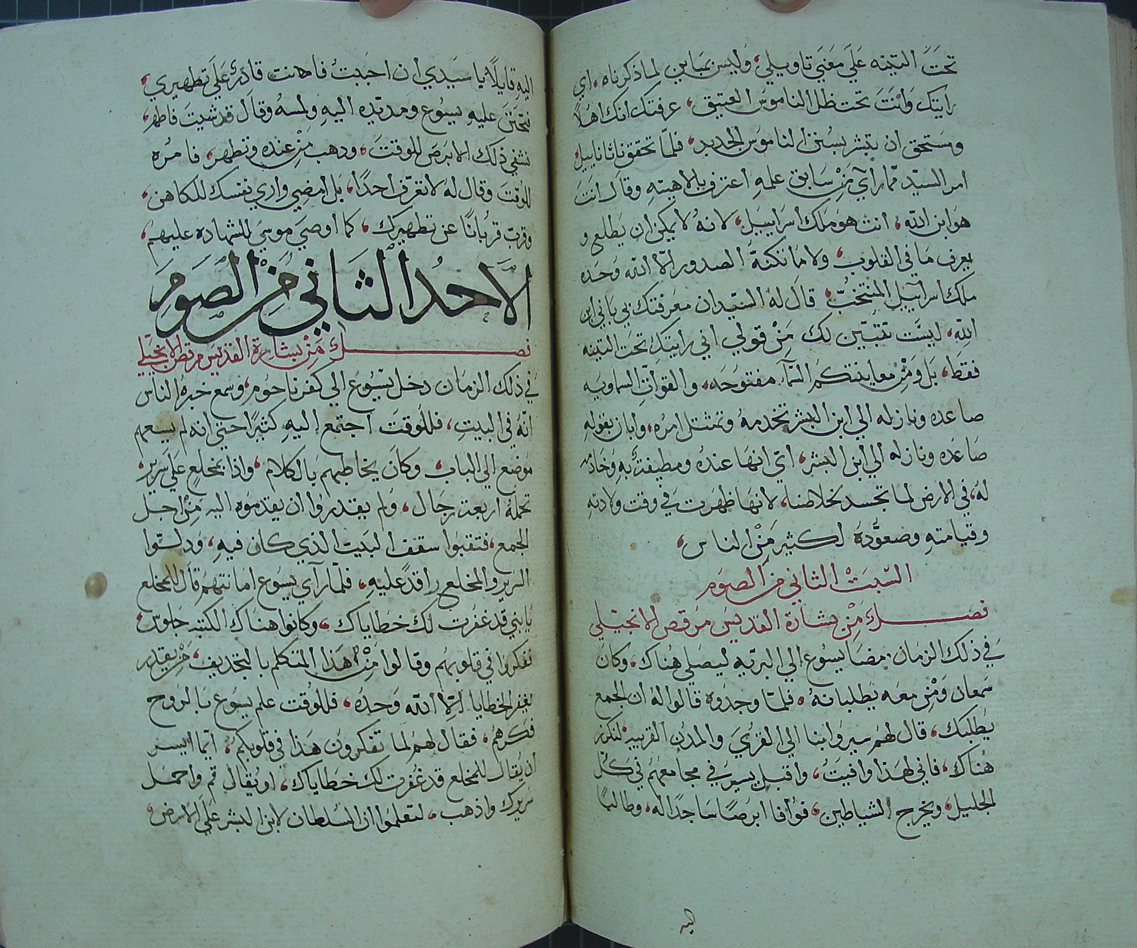 تحت التينه علي معني تاويلي، وليس بماين لما ذكرناه، اي
رايتك وانت تحت ظل الناموس العتيق، عرفتك انك اهلا
ومستحق ان تبشر بسنن الناموس الجديد، فلما تحقق ناثانابيل
امر السيد مما راي من سابق علمه اعترف بالاهيته وقال انت
هو ابن الله، انت هو ملك اسراييل، لانه لا يمكن ان يطلع و
يعرف ما في القلوب، ولا ما تكنه الصدور الا الله وحده
ملك اسراييل المنتخب، قال له السيد ان معرفتك بي باني ابن
الله، ليست تتبين لك من قولي اني رايتك تحت التينه
فقط، بل ومن معاينتكم السما مفتوحه، والقوات السماويه
صاعده ونازله الي ابن البشر تخدمه وتمتثل امره، وابان بقوله
صاعده ونازله الي ابن البشر، اي انها عنده ومطيفة به وخادمه
له، في الارض لما تجسد لخلاصنا، لانها ظهرت في وقت ولادته
وقيامته وصعوده لكثير من الناس،
السبت الثاني من الصوم
فصل من بشارة القديس مرقص الانجيلي
في ذلك الزمان مضا يسوع الي البريه ليصلي هناك، وكان
سمعان ومن معه يطلبانه، فلما وجدوه قالوا له ان الجمع
يطلبك، قال لهم سيروا بنا الي القري والمدن القريبه لنكرز
هناك، فاني لهذا وافيت، واقبل يسير في مجامعهم في كل
الجليل، ويخرج الشياطين، فوافا ابرصا ساجدا له، وطالبا
اليه
اليه قايلا يا سيدي ان احببت فانت قادر علي تطهيري،
فتحنن عليه يسوع ومد يده اليه ولمسه وقال قد شيت فاطهر،
فشفي ذلك الابرص للوقت، وذهب من عنده وتطهر، فامره
للوقت وقال له لا تعرف احدا، بل امضي واري نفسك للكاهن،
وقرب قربانا عن تطهيرك، كما اوصي موسي للشهاده عليهم،
الاحد الثاني من الصوم
فصل من بشارة القديس مرقص الانجيلي
في ذلك الزمان دخل يسوع الي كفرناحوم، وسمع خبره الناس
انه في البيت، فللوقت اجتمع اليه كثيرا حتي انه لم يسعهم
موضع الي الباب، وكان يخاطبهم بالكلام، واذا بمخلع علي سرير
تحمله اربعة رجال، ولم يقدروا ان يقدموه اليه من اجل
الجمع، فنقبوا سقف البيت الذي كان فيه، ودلوا
السرير والمخلع راقد عليه، فلما راي يسوع امانتهم قال للمخلع
يابني قد غفرت لك خطاياك، وكانوا هناك الكتبه جلوس
ففكروا في قلوبهم وقالوا من هذا المتكلم بالتجديف، من يقدر
يغفر الخطايا الا الله وحده، فللوقت علم يسوع بالروح
فكرهم، فقال لهم لما تفكرون هذا في قلوبكم، ايما ايسر
ان يقال للمخلع قد غفرت لك خطاياك، او يقال قم واحمل
سريرك واذهب، لتعلموا ان السلطان لابن البشر علي الارض،